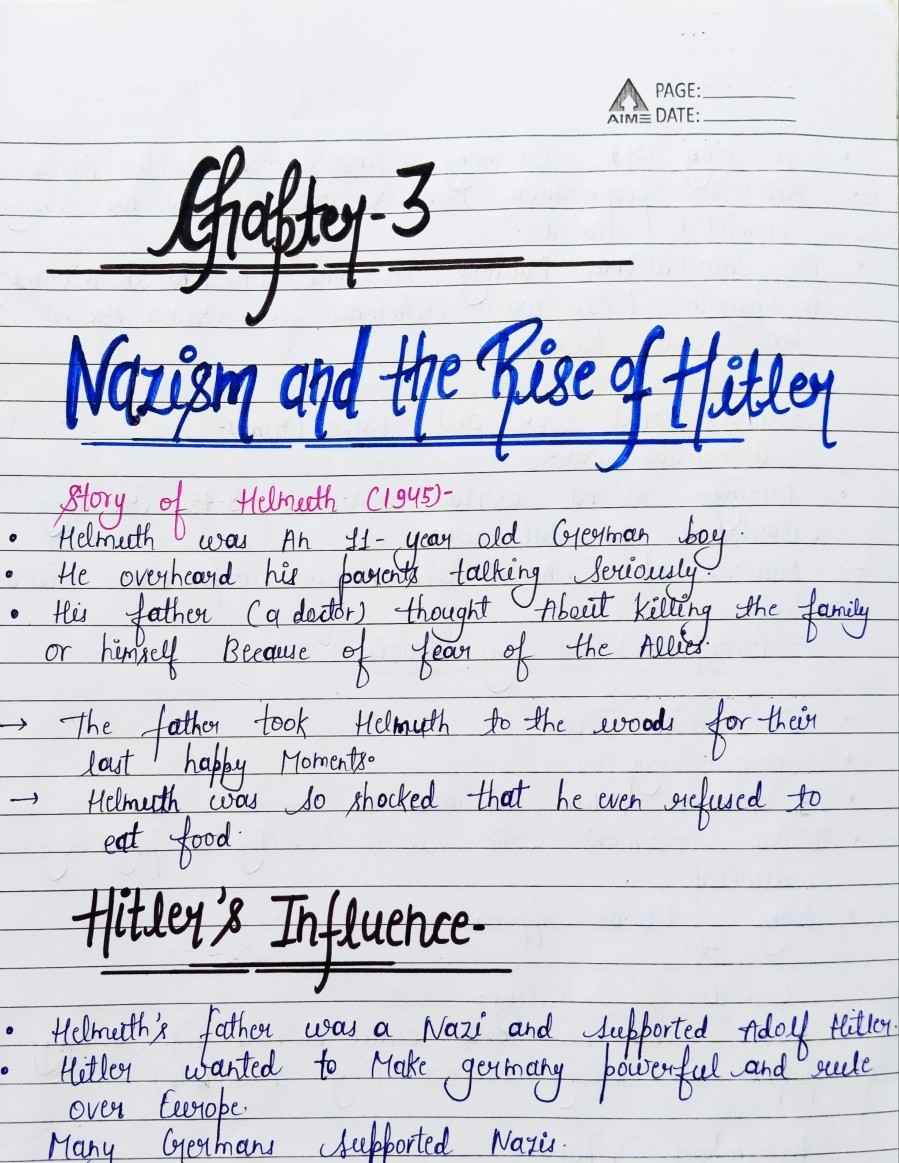 AIME PAGE:
DATE:
Chapter-3
Nazism and the Rise of Hitler
Story of Helmuth (1945)-
• Helmuth was An 11-year old German boy.
• He overheard his parents talking seriously.
• His father (a doctor) thought About killing the family
or himself Because of fear of the Allies.
→ The father took Helmuth to the woods for their
last happy Moments.
→ Helmuth was so shocked that he even refused to
eat food.
Hitler's Influence-
• Helmuth's father was a Nazi and supported Adolf Hitler.
• Hitler wanted to Make germany powerful and rule
over Europe.
Many Germans supported Nazis.